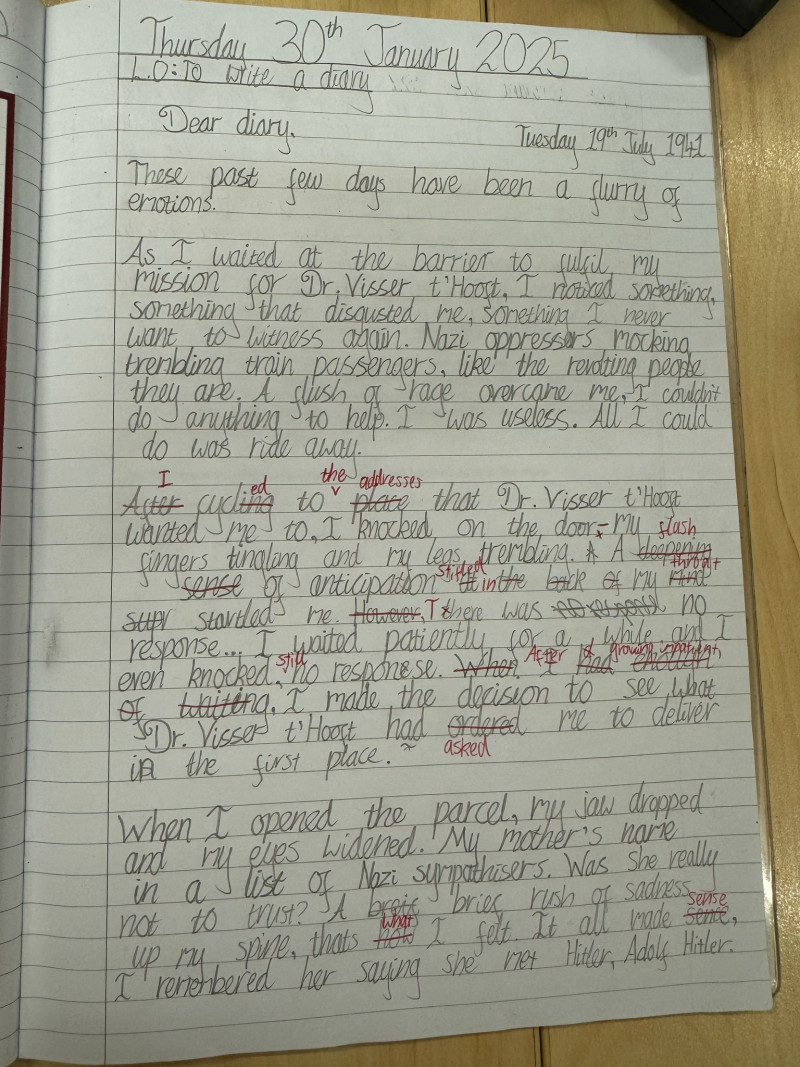 Thursday 30th January 2025
L.O: To write a diary
Dear diary,
Tuesday 19th July 1941
These past few days have been a flurry of
emotions.
As I waited at the barrier to fulfil my
mission for Dr. Visser t'Hooft, I noticed something,
something that disgusted me, something I never
want to witness again. Nazi oppressers mocking
trembling train passengers, like the revolting people
they are. A flush of rage overcame me, I couldn't
do anything to help. I was useless. All I could
do was ride away.
I ed the addresses
After cycling to place that Dr. Visser t'Hooft
wanted me to, I knocked on the door, my flash
fingers tingling and my legs trembling. A A deepening throat
sense of anticipation stifled at in the back of my mind
startled me. However, There was no
response... I waited patiently for a while and I
even knocked, still no responese. When After I had growing impatient, enough
of waiting, I made the decision to see what
Dr. Visser t'Hooft had ordered me to deliver
asked
in the first place.
When I opened the parcel, my jaw dropped
and my eyes widened. My mother's name
in a list of Nazi sympathisers. Was she really
not to trust? A brief rush of sadness sense
what
up my spine, thats how I felt. It all made sence,
I remembered her saying she met Hitler, Adolf Hitler.